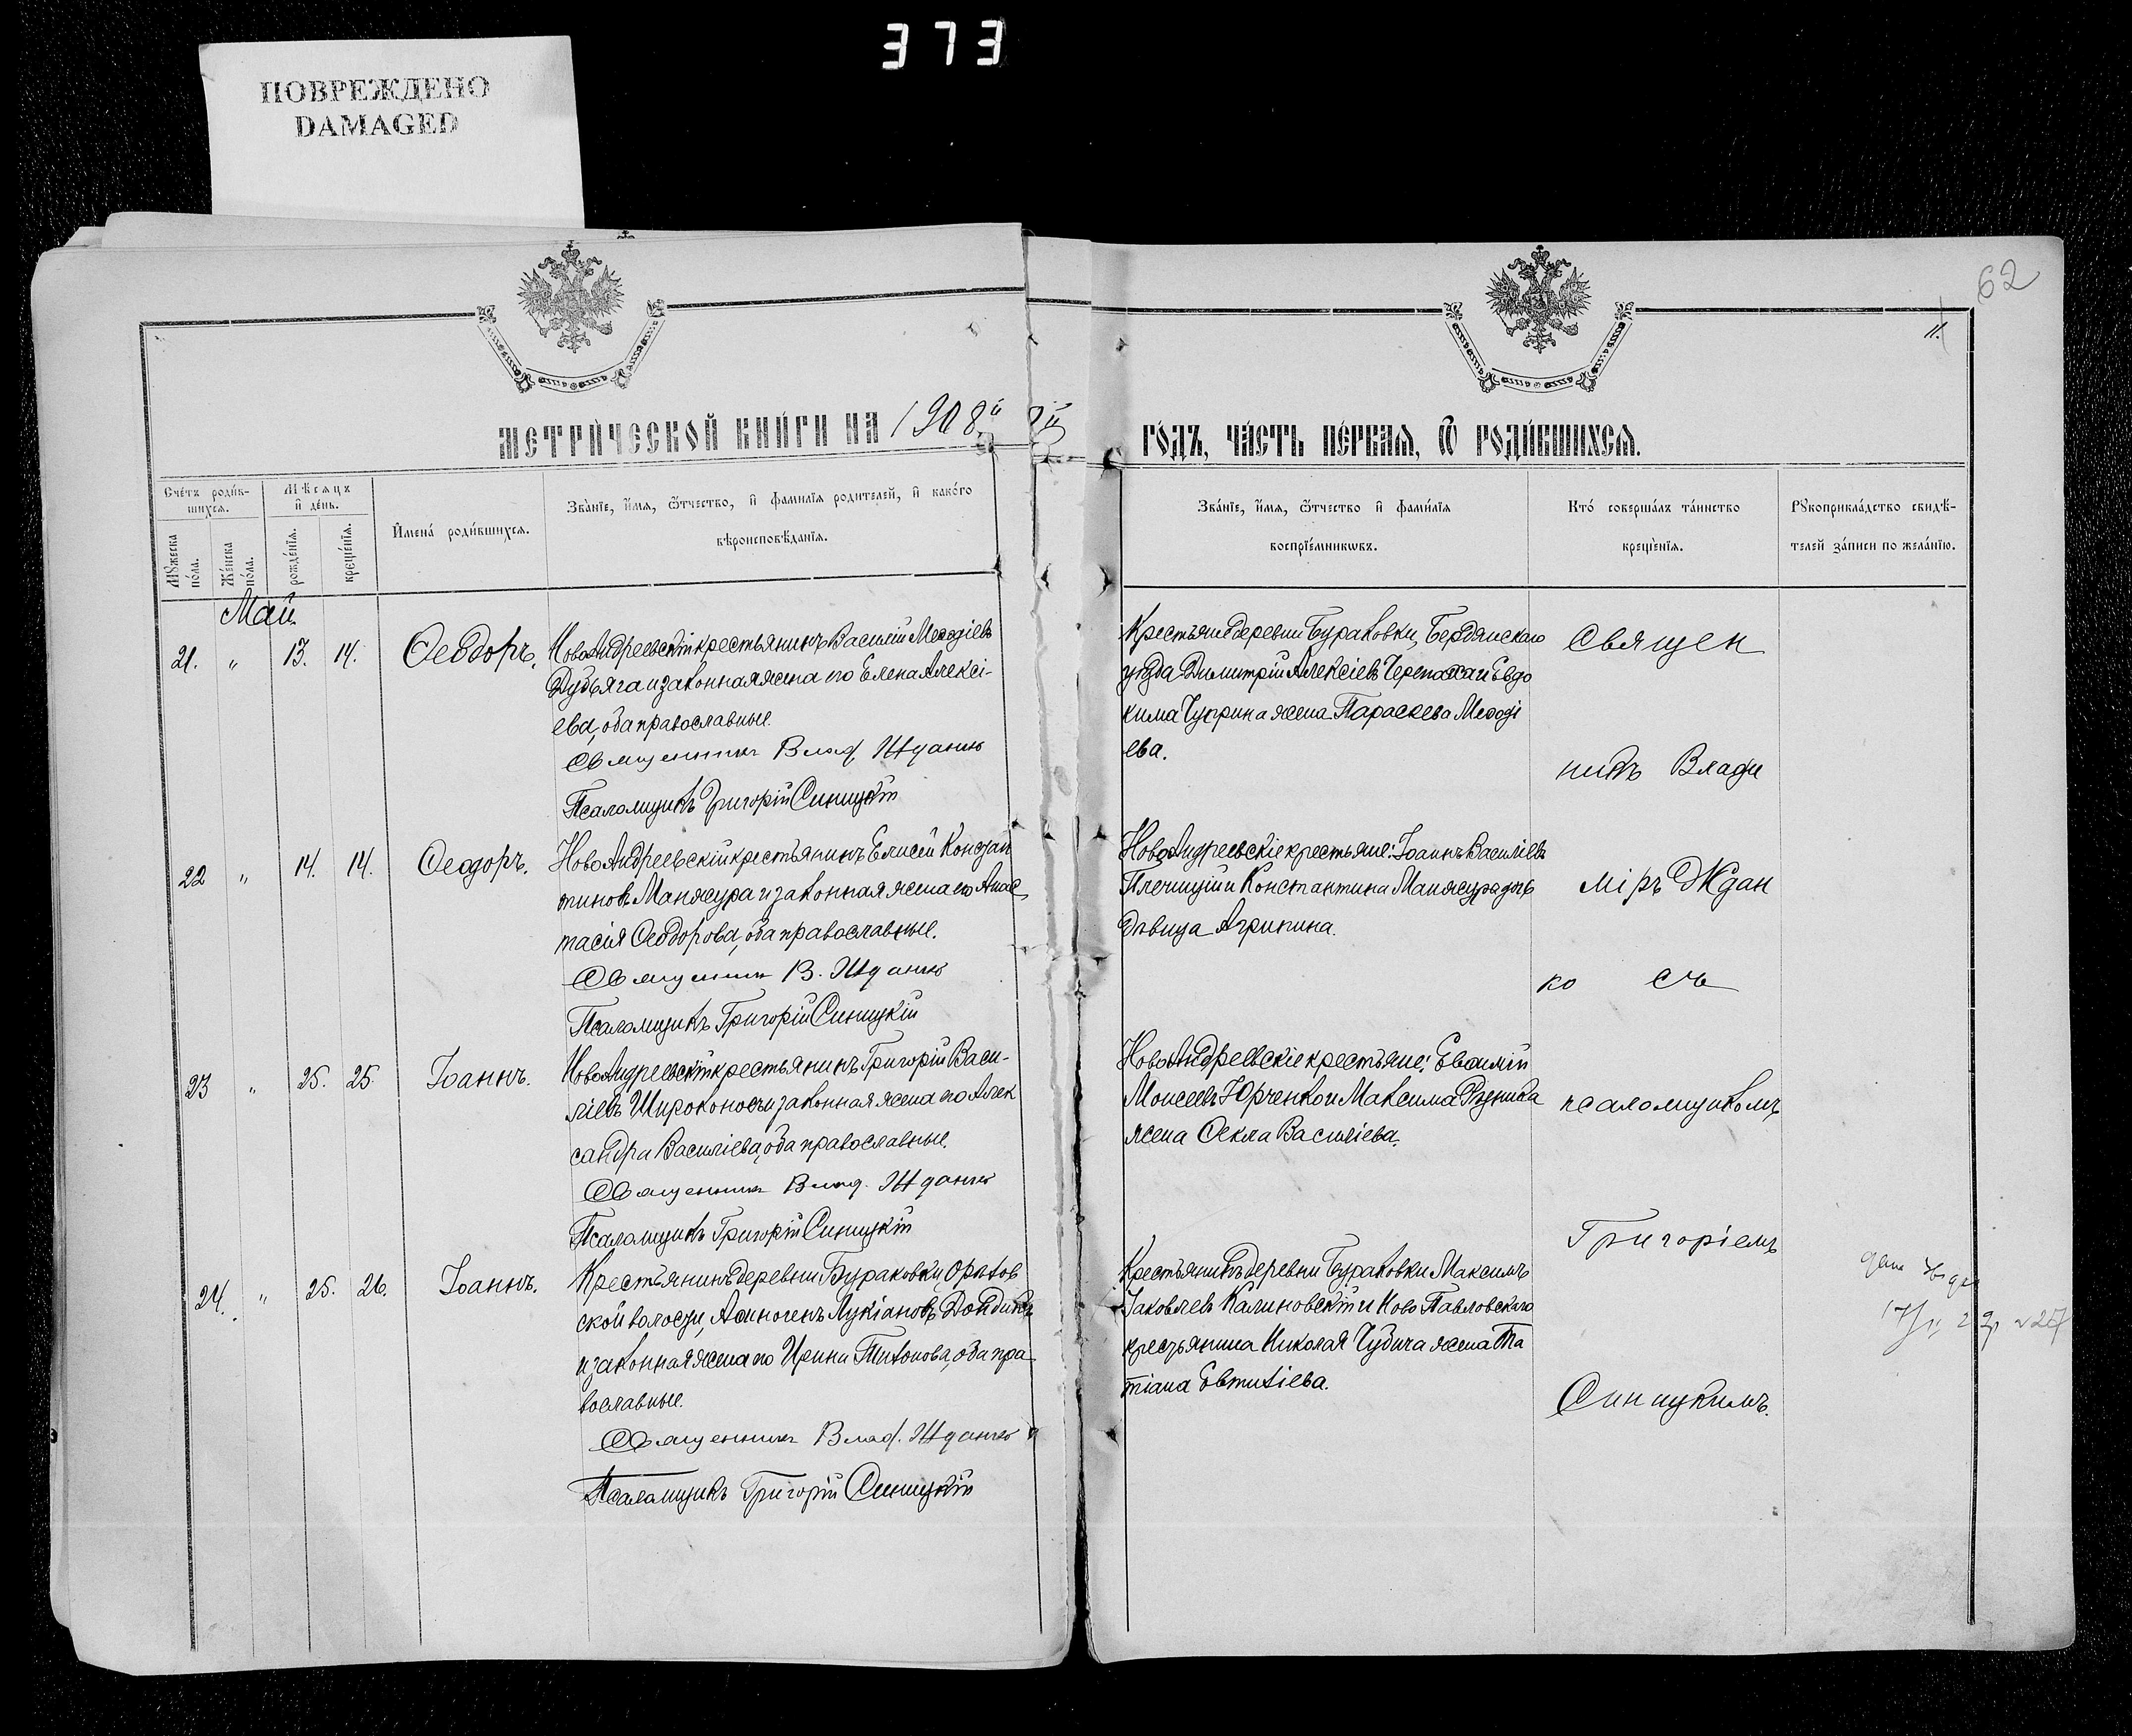 373
ПОВРЕЖДЕНО
DAMAGED
62
11.
МЕТРИЧЕСКОЙ КНИГИ НА 1908й
ГОДЪ, ЧАСТЬ ПЕРВАЯ, Ѿ РОДИВШИХСЯ.
Счетъ родив-
шихся.
Мѣсяцъ
и день.
Мужеска
пола.
Женска
пола.
рожденія.
крещенія.
Имена родившихся.
Званіе, имя, ѿтчество, и фамилія родителей, и какого
вѣроисповѣданія.
Званіе, имя, ѿтчество и фамилія
воспріемниковъ.
Кто совершалъ таинство
крещенія.
Рукоприкладство свидѣ-
телей записи по желанію.
Май
21. " 13. 14. Ѳеодоръ.
НовоАндреевскій крестьянинъ Василій Меѳодіевъ
Дубяга и законная жена его Елена Алексі-
ева, оба православные.
Священникъ Влад. Жданко
Псаломщикъ Григорій Синицкій
Крестьяне деревни Бураковки, Бердянскаго
уѣзда Димитрій Алексіевъ Черепаха и Евдо
кима Чуприна жена Параскева Меѳоді
ева.
22 " 14. 14. Ѳеодоръ.
НовоАндреевскій крестьянинъ Елисей Констан
тиновъ Манжура и законная жена его Анас
тасія Ѳеодорова, оба православные.
Священникъ В. Жданко
Псаломщикъ Григорій Синицкій
НовоАндреевскіе крестьяне: Іоаннъ Василіевъ
и Константина Манжура дочь
дѣвица Агрипина.
23 " 25. 25. Іоаннъ.
НовоАндреевскій крестьянинъ Григорій Васи-
ліевъ Широконосъ и законная жена его Алек
сандра Василіева, оба православные.
Священникъ Влад. Жданко
Псаломщикъ Григорій Синицкій
НовоАндреевскіе крестьяне: Евѳимій
Моисеевъ Юрченко и Максима
жена Ѳекла Василіева.
24. " 25. 26. Іоаннъ.
Крестьянинъ деревни Бураковки, Орѣхов
ской волости, Аѳиногенъ Лукіановъ
и законная жена его Ирина Титова, оба пра
вославные.
Священникъ Влад. Жданко
Псаломщикъ Григорій Синицкій
Крестьянинъ деревни Бураковки Максимъ
Іаковлевъ Калиновскій и Ново Павловскаго
крестьянина Николая Чубича жена Та
тіана Евтихіева.
Священ
никъ Влади
міръ Ждан
ко съ
псаломщикомъ
Григоріемъ
Синицкимъ.